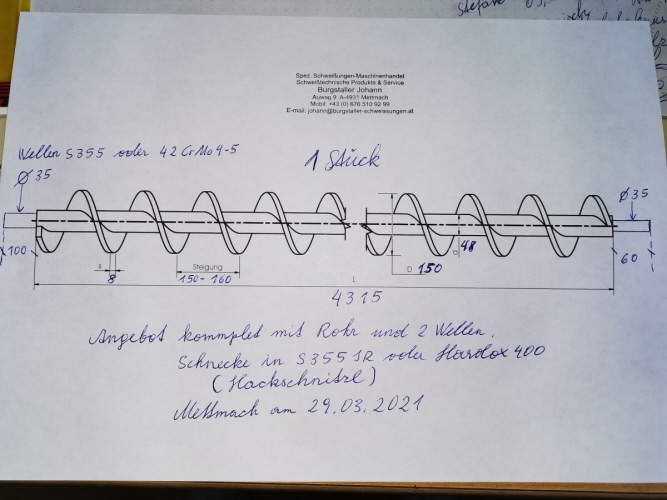 Spez. Schweißungen-Maschinenhandel
Schweißtechnische Produkte & Service
Burgstaller Johann
Auweg 9 A-4931 Mettmach
Mobil: +43 (0) 676 510 92 99
E-mail: johann@burgstaller-schweissungen.at
Wellen S355 oder 42 CrMo4-5
1 Stück
Ø 35
Ø 35
100
8
Steigung
150-160
D 150
d 48
60
L
4315
Angebot kommplet mit Rohr und 2 Wellen.
Schnecke in S355 JR oder Hardox 400
(Hackschnitzl)
Mettmach am 29.03.2021